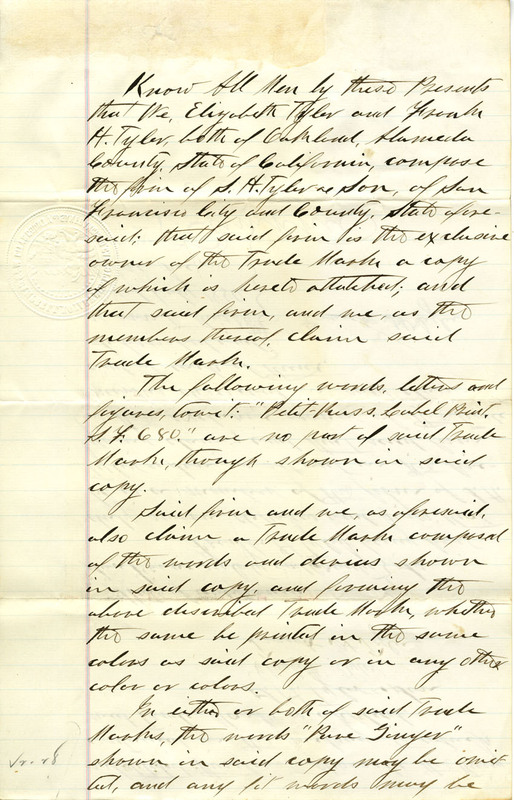 Know All Men by these Presents
that We, Elizabeth Tyler and Frank
H. Tyler, both of Oakland, Alameda
County, State of California, compose
the firm of S. H. Tyler & Son, of San
Francisco City and County, State afore-
said; that said firm is the exclusive
owner of the Trade Mark a copy
of which is hereto attatched; and
that said firm, and we, as the
members thereof, claim said
Trade Mark.
The following words, letters and
figures, towit: "Label Print.
S. F. 680." are no part of said Trade
Mark, though shown in said
copy.
Said firm and we, as aforesaid,
also claim a Trade Mark composed
of the words and devices shown
in said copy, and forming the
above described Trade Mark, whether
the same be printed in the same
colors as said copy or in any other
color or colors.
In either or both of said Trade
Marks, the words "Pure Ginger"
shown in said copy may be omit-
ted, and any fit words may be